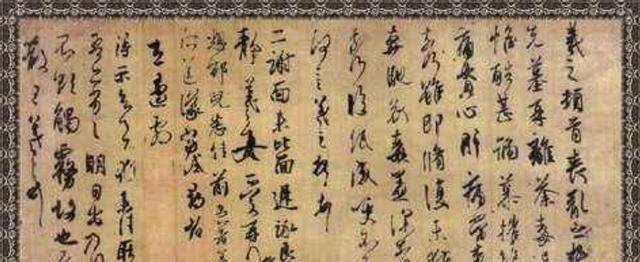 羲之頓首喪亂之極
先墓再離荼毒
惟酷甚號慕摧
痛貫心肝痛當
奈何雖即脩復未
奔馳哀毒益深奈
奈何臨紙感哽不
何言羲之頓首
二謝面未比面遲詠良
靜羲之女愛再
想邵兒悉佳前患者
所送議當試尋省
左邊劇
得示知足下猶未佳耿
吾亦劣劣明日出乃
不欲觸霧故也
散王羲之頓首